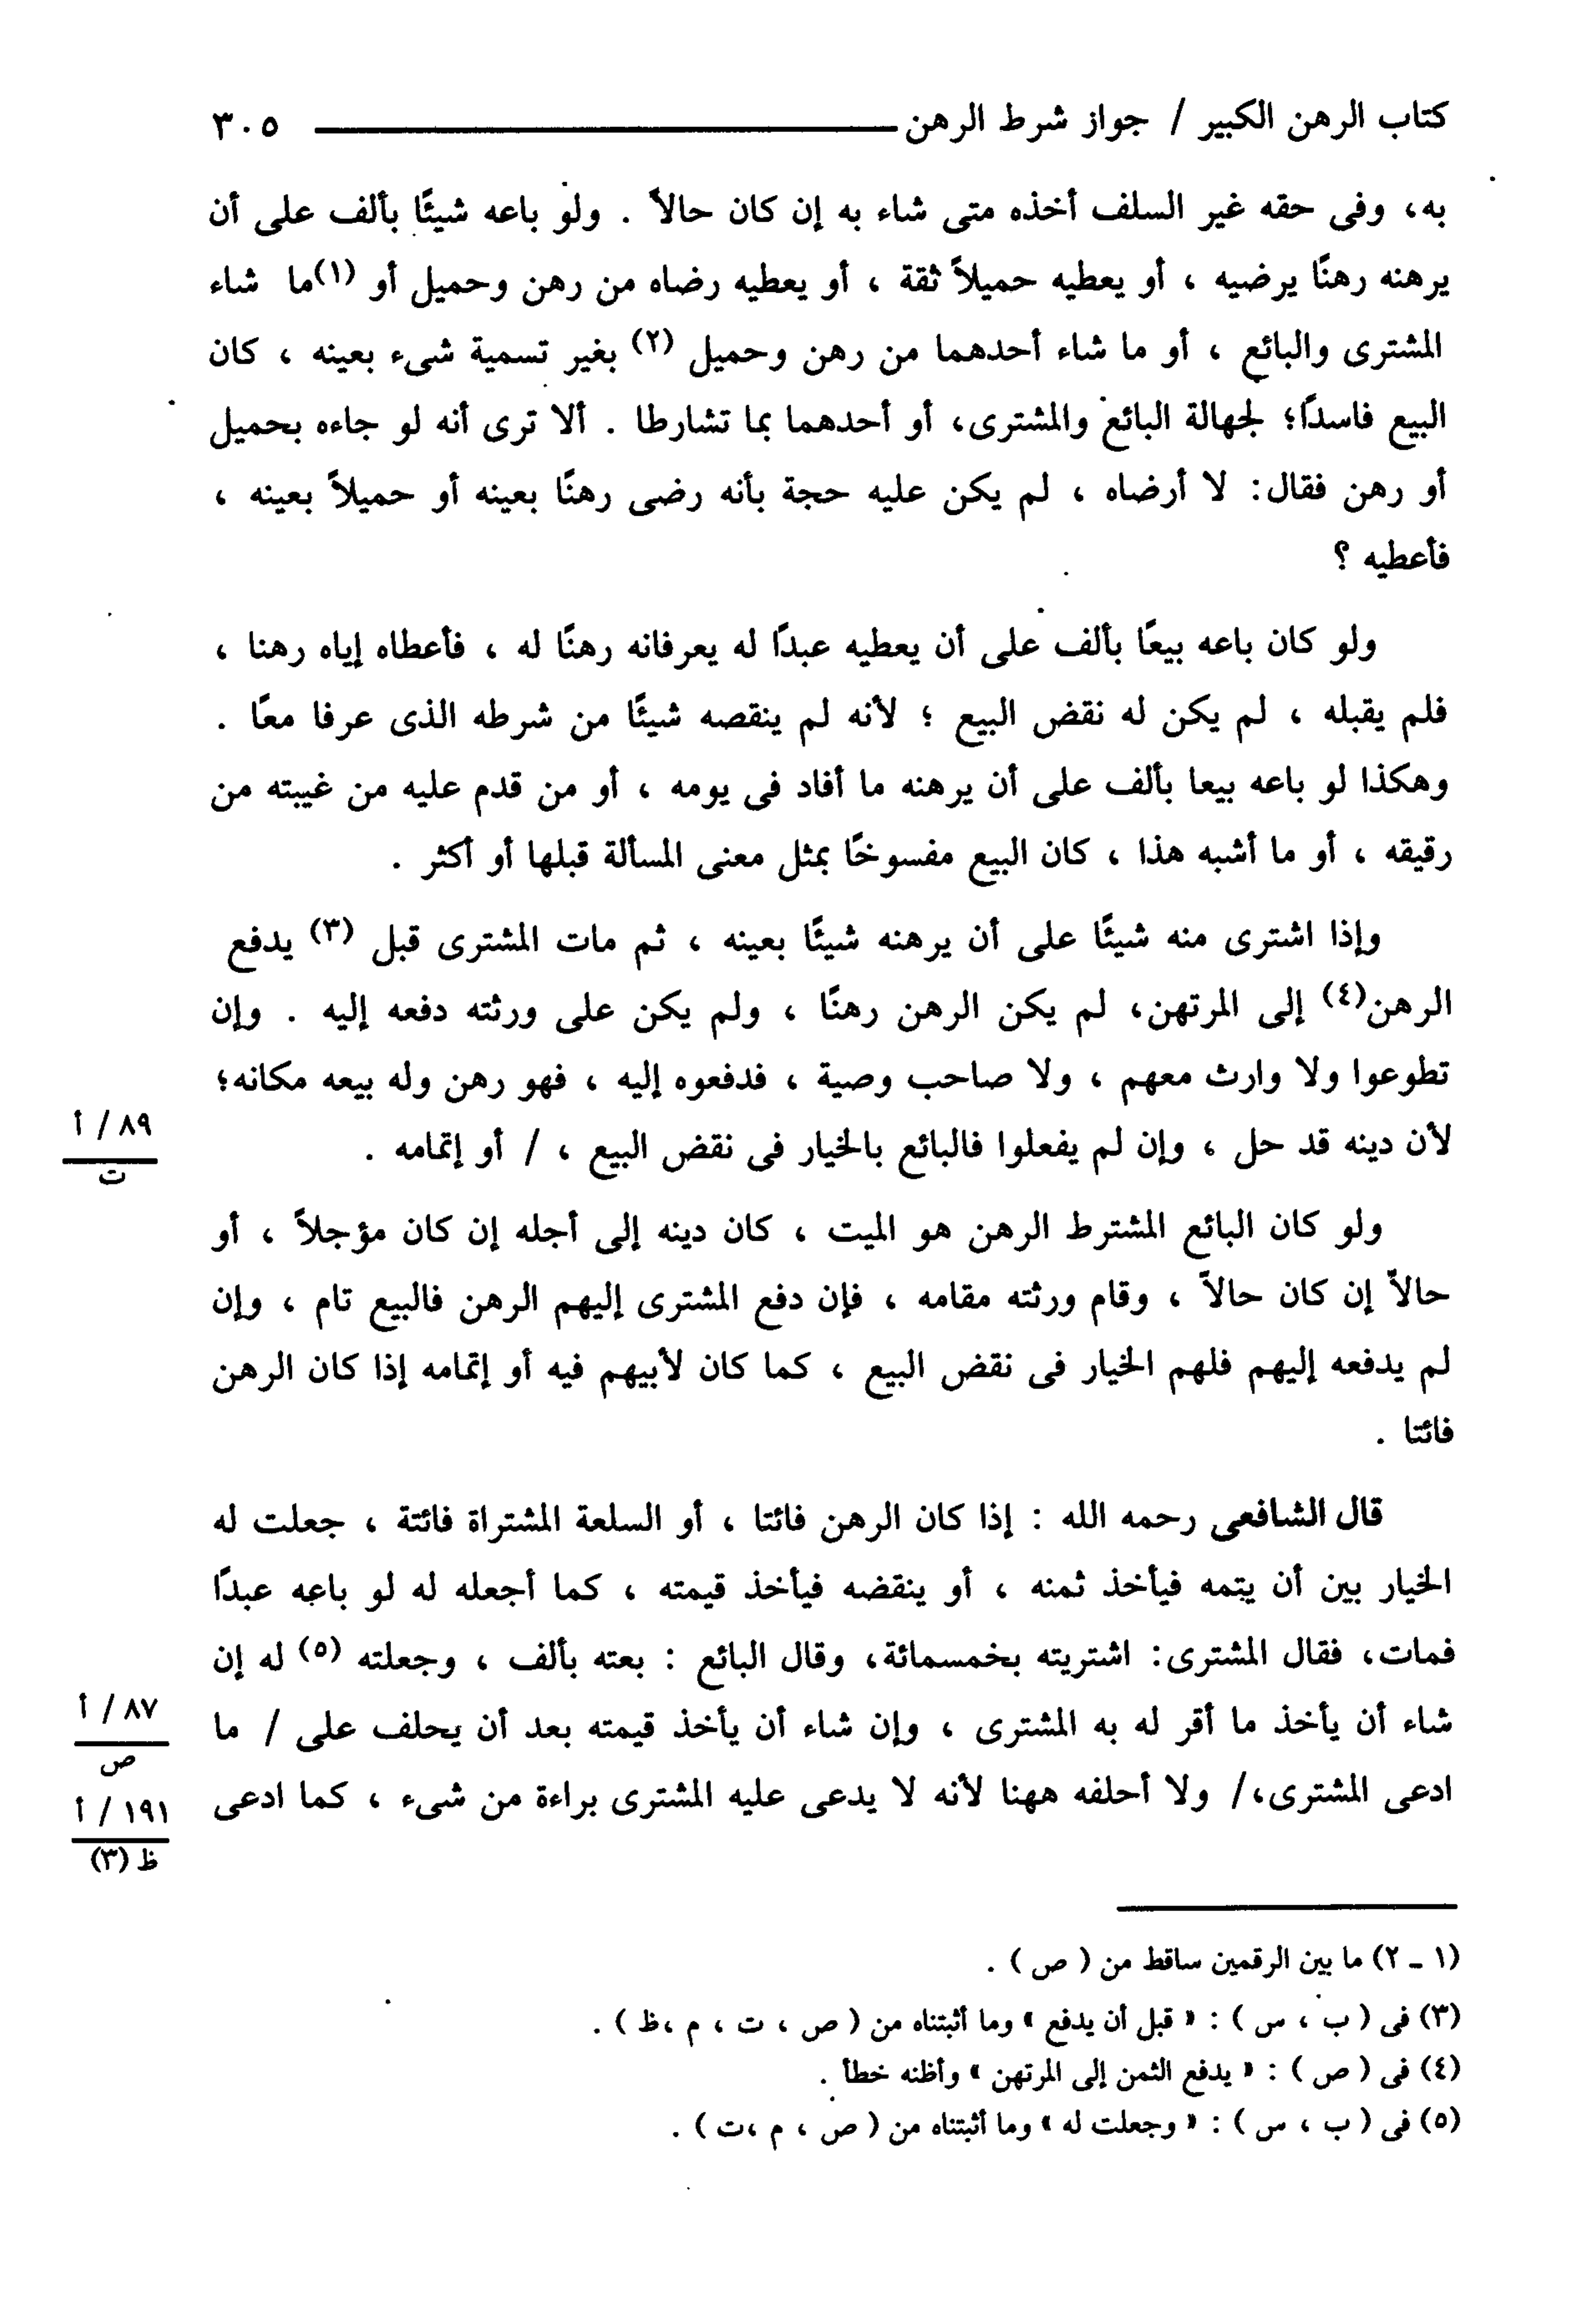 كتاب الرهن الكبير / جواز شرط الرهن ٣٠٥
به، وفى حقه غير السلف أخذه متى شاء به إن كان حالاً . ولو باعه شيئًا بألف على أن
يرهنه رهنًا يرضيه ، أو يعطيه حميلاً ثقة ، أو يعطيه رضاه من رهن وحميل أو (١)ما شاء
المشترى والبائع ، أو ما شاء أحدهما من رهن وحميل (٢) بغير تسمية شىء بعينه ، كان
البيع فاسدًا؛ لجهالة البائع والمشترى، أو أحدهما بما تشارطا . ألا ترى أنه لو جاءه بحميل
أو رهن فقال: لا أرضاه ، لم يكن عليه حجة بأنه رضى رهنًا بعينه أو حميلاً بعينه ،
فأعطيه ؟
ولو كان باعه بيعًا بألف على أن يعطيه عبدًا له يعرفانه رهنًا له ، فأعطاه إياه رهنا ،
فلم يقبله ، لم يكن له نقض البيع ؛ لأنه لم ينقصه شيئًا من شرطه الذى عرفا معًا .
وهكذا لو باعه بيعا بألف على أن يرهنه ما أفاد فى يومه ، أو من قدم عليه من غيبته من
رقيقه ، أو ما أشبه هذا ، كان البيع مفسوخًا بمثل معنى المسألة قبلها أو أكثر .
وإذا اشترى منه شيئًا على أن يرهنه شيئًا بعينه ، ثم مات المشترى قبل (٣) يدفع
الرهن(٤) إلى المرتهن، لم يكن الرهن رهنًا ، ولم يكن على ورثته دفعه إليه . وإن
تطوعوا ولا وارث معهم ، ولا صاحب وصية ، فدفعوه إليه ، فهو رهن وله بيعه مكانه؛
لأن دينه قد حل ، وإن لم يفعلوا فالبائع بالخيار فى نقض البيع ، / أو إتمامه .
٨٩ / أ
ت
ولو كان البائع المشترط الرهن هو الميت ، كان دينه إلى أجله إن كان مؤجلاً ، أو
حالاّ إن كان حالاً ، وقام ورثته مقامه ، فإن دفع المشترى إليهم الرهن فالبيع تام ، وإن
لم يدفعه إليهم فلهم الخيار فى نقض البيع ، كما كان لأبيهم فيه أو إتمامه إذا كان الرهن
فائتا .
قال الشافعى رحمه الله : إذا كان الرهن فائتا ، أو السلعة المشتراة فائتة ، جعلت له
الخيار بين أن يتمه فيأخذ ثمنه ، أو ينقضه فيأخذ قيمته ، كما أجعله له لو باعه عبدًا
فمات، فقال المشترى: اشتريته بخمسمائة، وقال البائع : بعته بألف ، وجعلته (٥) له إن
شاء أن يأخذ ما أقر له به المشترى ، وإن شاء أن يأخذ قيمته بعد أن يحلف على / ما
٨٧ / أ
ص
ادعى المشترى،/ ولا أحلفه ههنا لأنه لا يدعى عليه المشترى براءة من شىء ، كما ادعى
١٩١ / أ
ظ (٣)
(١ - ٢) ما بين الرقمين ساقط من ( ص ) .
(٣) فى ( ب ، س ) : « قبل أن يدفع » وما أثبتناه من ( ص ، ت ، م ،ظ ) .
(٤) فى ( ص ) : « يدفع الثمن إلى المرتهن » وأظنه خطأ .
(٥) فى ( ب ، س ) : « وجعلت له » وما أثبتناه من ( ص ، م ،ت ) .